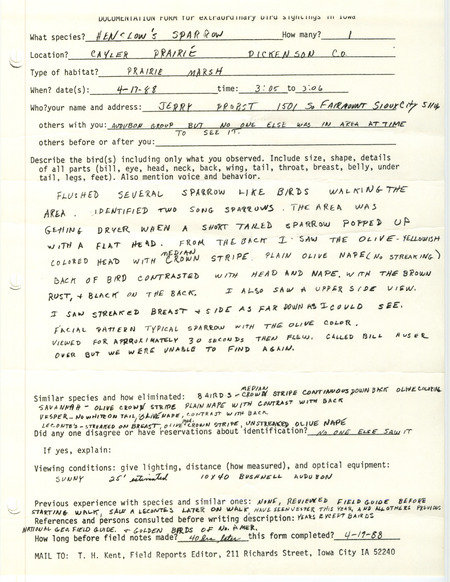 DOCUMENTATION FORM for extraordinary bird sightings in Iowa
What species? HENSLOW'S SPARROW How many? 1
Location? CAYLER PRAIRIE DICKENSON CO.
Type of habitat? PRAIRIE MARSH
When? date(s): 4-17-88 time: 3:05 to 3:06
Who?your name and address: JERRY PROBST 1501 So FAIRMOUNT SIOUX CITY
others with you: AUDUBON GROUP BUT NO ONE ELSE WAS IN AREA AT TIME
TO SEE IT.
others before or after you:
Describe the bird(s) including only what you observed. Include size, shape, details
of all parts (bill, eye, head, neck, back, wing, tail, throat, breast, belly, under
tail, legs, feet). Also mention voice and behavior.
FLUSHED SEVERAL SPARROW LIKE BIRDS WALKING THE
AREA. IDENTIFIED TWO SONG SPARROWS. THE AREA WAS
GETTING DRYER WHEN A SHORT TAILED SPARROW POPPED UP
WITH A FLAT HEAD. FROM THE BACK I SAW THE OLIVE-YELLOWISH
COLORED HEAD WITH MEDIAN CROWN STRIPE. PLAIN OLIVE NAPE (NO STREAKING)
BACK OF BIRD CONTRASTED WITH HEAD AND NAPE, WITH THE BROWN
RUST, + BLACK ON THE BACK. I ALSO SAW A UPPER SIDE VIEW.
I SAW STREAKED BREAST & SIDE AS FAR DOWN AS I COULD SEE.
FACIAL PATTERN TYPICAL SPARROW WITH THE OLIVE COLOR.
VIEWED FOR APPROXIMATELY 30 SECONDS THEN FLEW. CALLED BILL HUSER
OVER BUT WE WERE UNABLE TO FIND AGAIN.
Similar species and how eliminated: BAIRDS - MEDIAN CROWN STRIPE CONTINUOUS DOWN BACK OLIVE COLORING
SAVANNAH - OLIVE CROWN STRIPE PLAIN NAPE WITH CONTRAST WITH BACK
VESPER - NO WHITE ON TAIL, OLIVE NAPE, CONTRAST WITH BACK
LECONTES - STREAKED ON BREAST, OLIVE CROWN STRIPE, UNSTREAKED OLIVE NAPE
Did any one disagree or have reservations about identification? NO ONE ELSE SAW IT
If yes, explain:
Viewing conditions: give lighting, distance (how measured), and optical equipment:
SUNNY 25' estimated 10X40 BUSHNELL AUDUBON
Previous experience with species and similar ones: NONE, REVIEWED FIELD GUIDE BEFORE
STARTING WALK, SAW A LECONTES LATER ON WALK HAVE SEEN VESTER THIS YEAR, AND ALL OTHERS PREVIOUS
References and persons consulted before writing description: YEARS EXCEPT BAIRDS
NATIONAL GEA FIELD GUIDE. + GOLDEN BIRDS OF NO. AMER.
How long before field notes made? 40 hrs later this form completed? 4-19-88
MAIL TO: T. H. Kent, Field Reports Editor, 211 Richards Street, Iowa City IA 52240